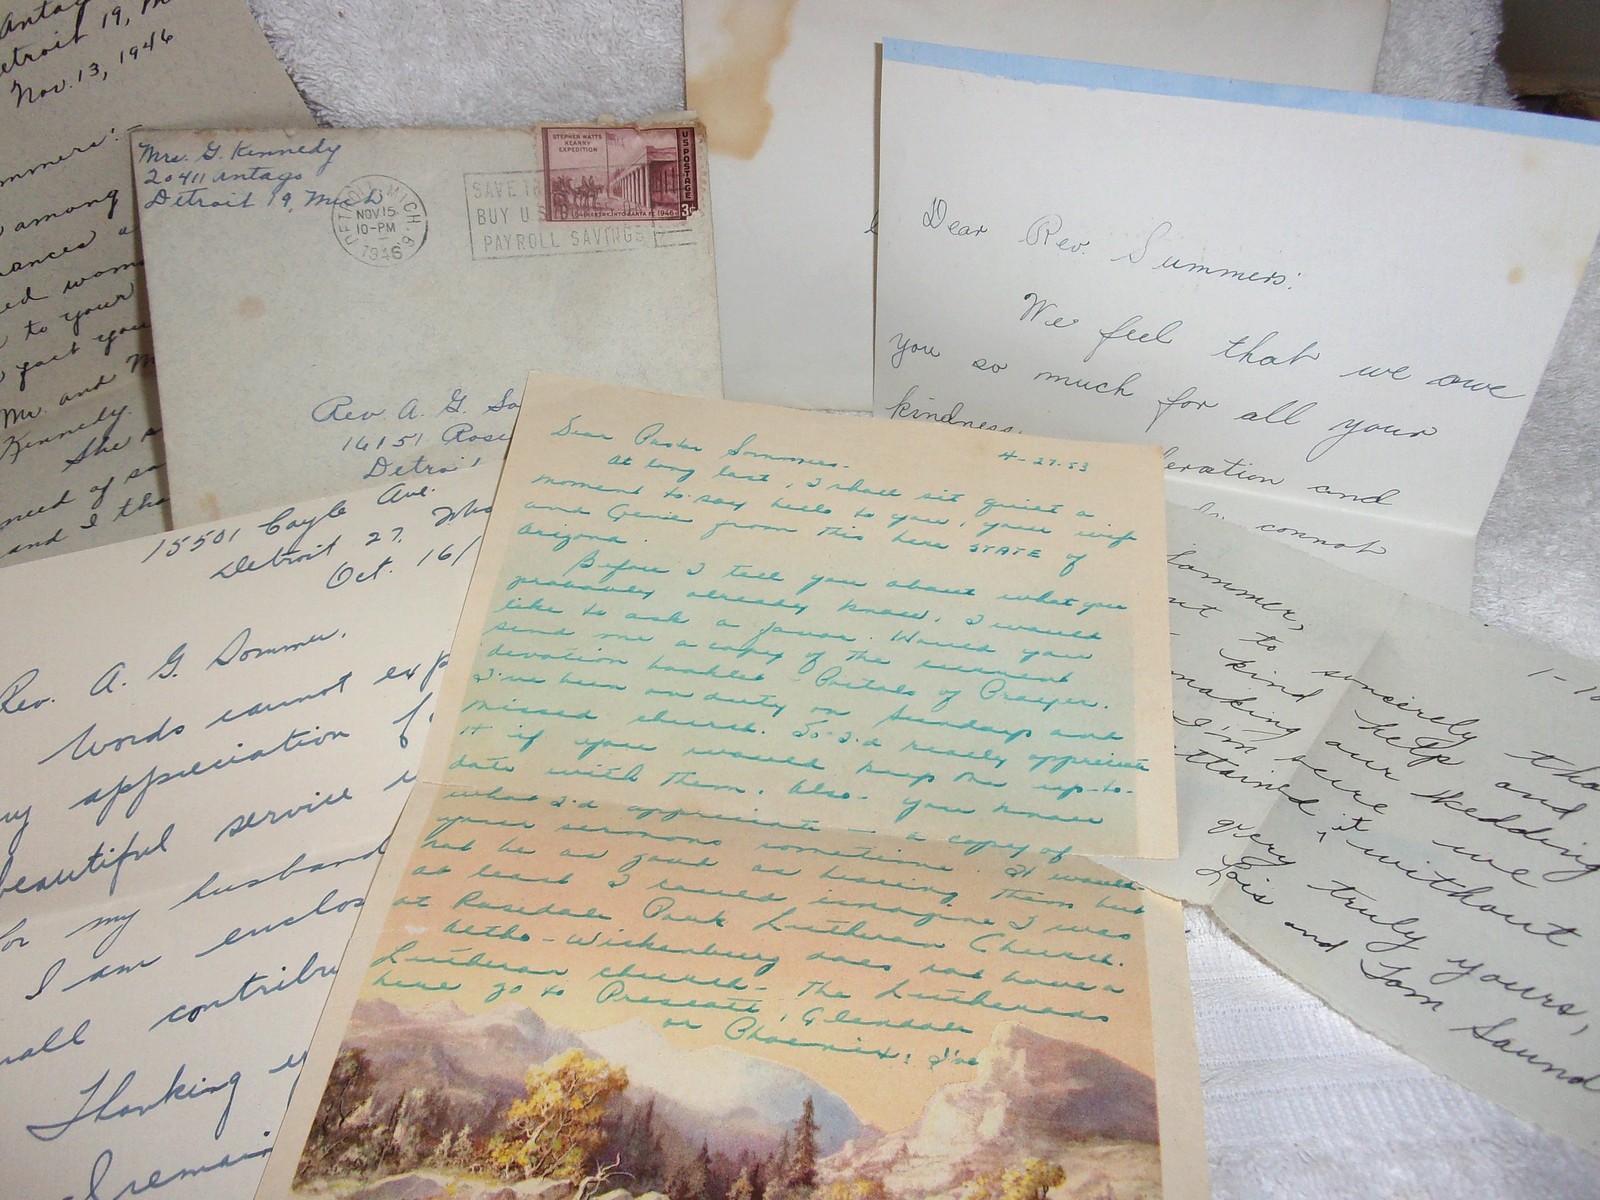 Antag
Detroit 19, M
Nov. 13, 1946
mmers:-
among
ances a
ed wom
to your
fact you
Mr. and M
Kennedy.
She s
need of so
and I tha
Mrs. G. Kennedy
20411 Antago
Detroit 19, Mich
DETROIT, MICH.
NOV 15
10-PM
1946
SAVE TH
BUY U S
PAYROLL SAVINGS
STEPHEN WATTS
KEARNY
EXPEDITION
U.S. POSTAGE
3¢
Rev. A. G. So
16151 Rose
Detroi
Dear Rev. Summers:
We feel that we owe
you so much for all your
kindness,
eration and
connot
15501 Coyle Ave.
Detroit 27,
Oct. 16/
Rev. A. G. Sommer,
Words cannot exp
my appreciation
beautiful service
for my husband
I am enclos
mall contribu
Thanking y
I remain
Dear Pastor Sommers- 4-27-53
At long last, I shall sit quiet a
moment to say hello to you, your wife
and Genie from this here STATE of
Arizona.
Before I tell you about what you
probably already know, I would
like to ask a favor. Would you
send me a copy of the current
devotion booklet - Portals of Prayer.
I've been on duty on Sundays and
missed church. So I'd really appreciate
it if you would keep me up-to-
date with them. Also - you know
what I'd appreciate - a copy of
your sermons sometime. It would
not be as good as hearing them but
at least I could imagine I was
at Rosedale Park Lutheran Church.
Altho - Wickenburg does not have a
Lutheran church - the Lutherans
here go to Prescott, Glendale
or Phoenix. I've
1-1
Sommer,
nt to sincerely tha
kind help and
making our wedding
I'm sure we
ttained it without
very truly yours,
Lois and Tom Saund